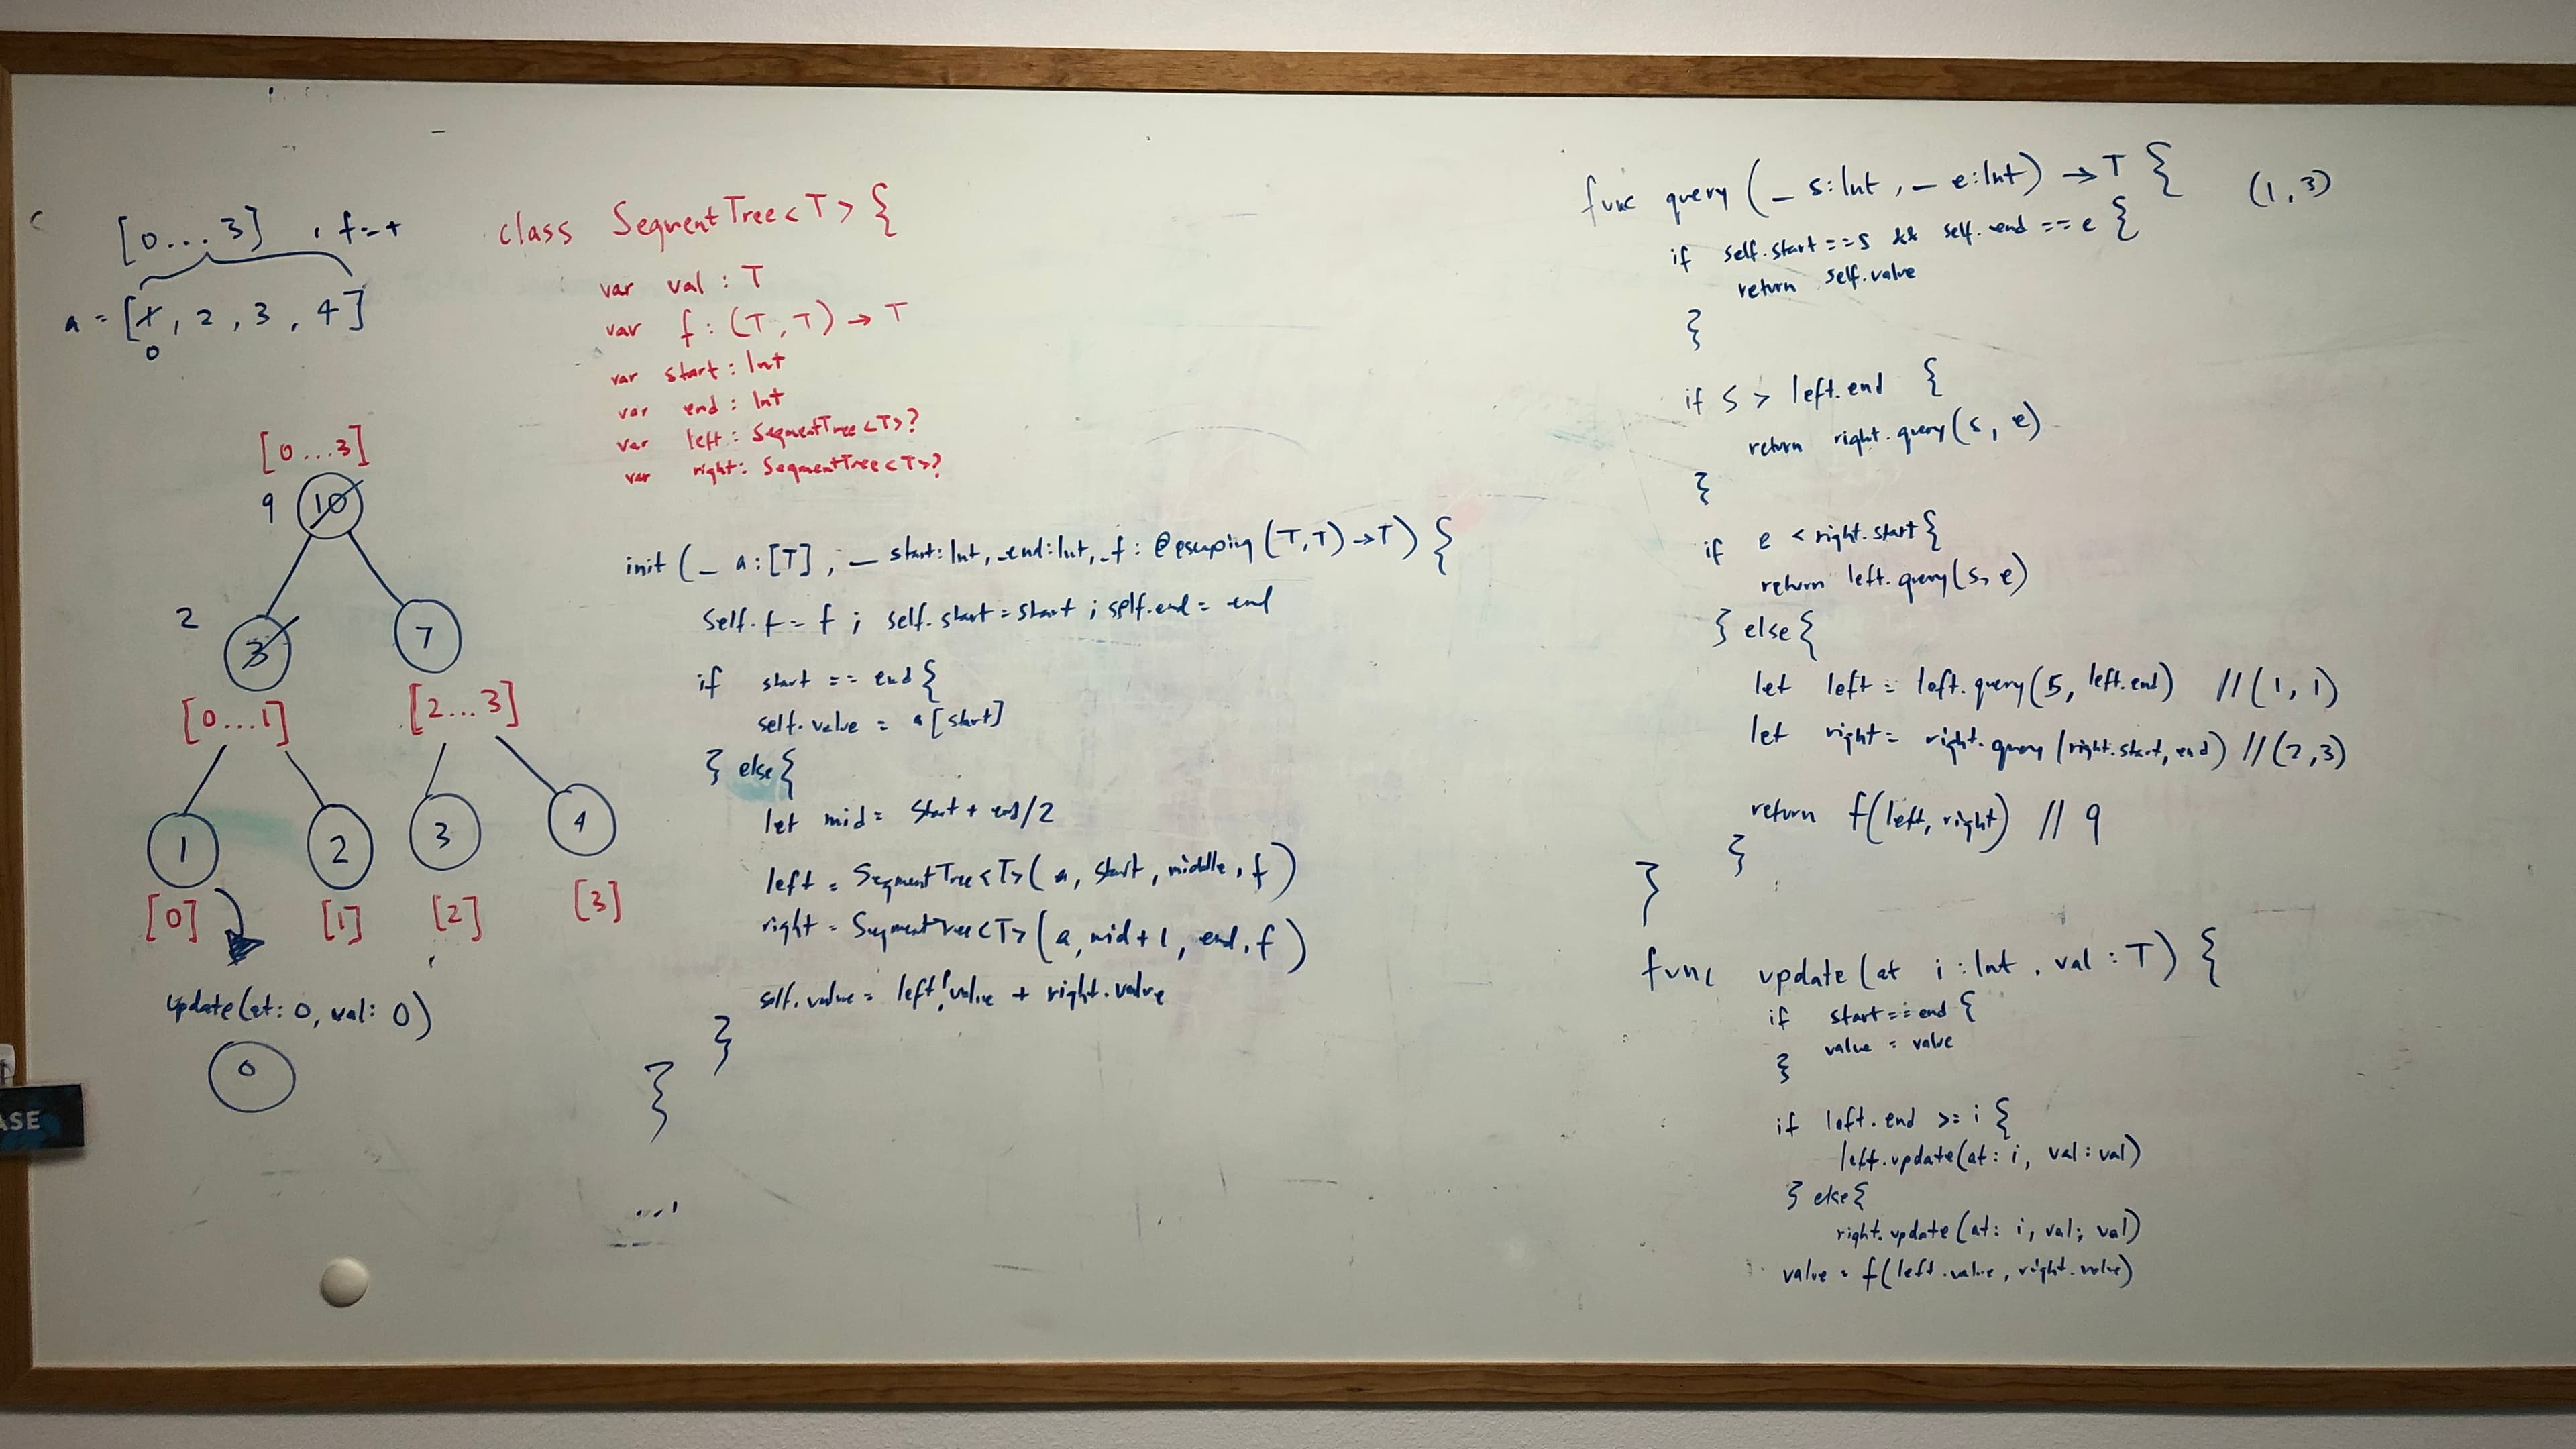 [0...3] , f=+
a = [1, 2, 3, 4]
0
[0...3]
9 10
2 3 7
[0...1] [2...3]
1 2 3 4
[0] [1] [2] [3]
update(at: 0, val: 0)
0
ASE
class SegmentTree<T> {
var val : T
var f : (T, T) → T
var start : Int
var end : Int
var left : SegmentTree<T>?
var right : SegmentTree<T>?
init ( _ a : [T] , _ start : Int, _ end : Int, _ f : @escaping (T,T) → T) {
self.f = f ; self.start = start ; self.end = end
if start == end {
self.value = a[start]
} else {
let mid = start + end/2
left = SegmentTree<T>( a, start, middle, f )
right = SegmentTree<T>( a, mid+1, end, f )
self.value = left!.value + right.value
}
}
...
func query ( _ s : Int , _ e : Int) → T { (1,3)
if self.start == s && self.end == e {
return self.value
}
if s > left.end {
return right.query(s, e)
}
if e < right.start {
return left.query(s, e)
} else {
let left = left.query(s, left.end) // (1, 1)
let right = right.query(right.start, end) // (2,3)
return f(left, right) // 9
}
}
func update(at i : Int , val : T) {
if start == end {
value = value
}
if left.end >= i {
left.update(at: i, val: val)
} else {
right.update(at: i, val: val)
value = f(left.value, right.value)